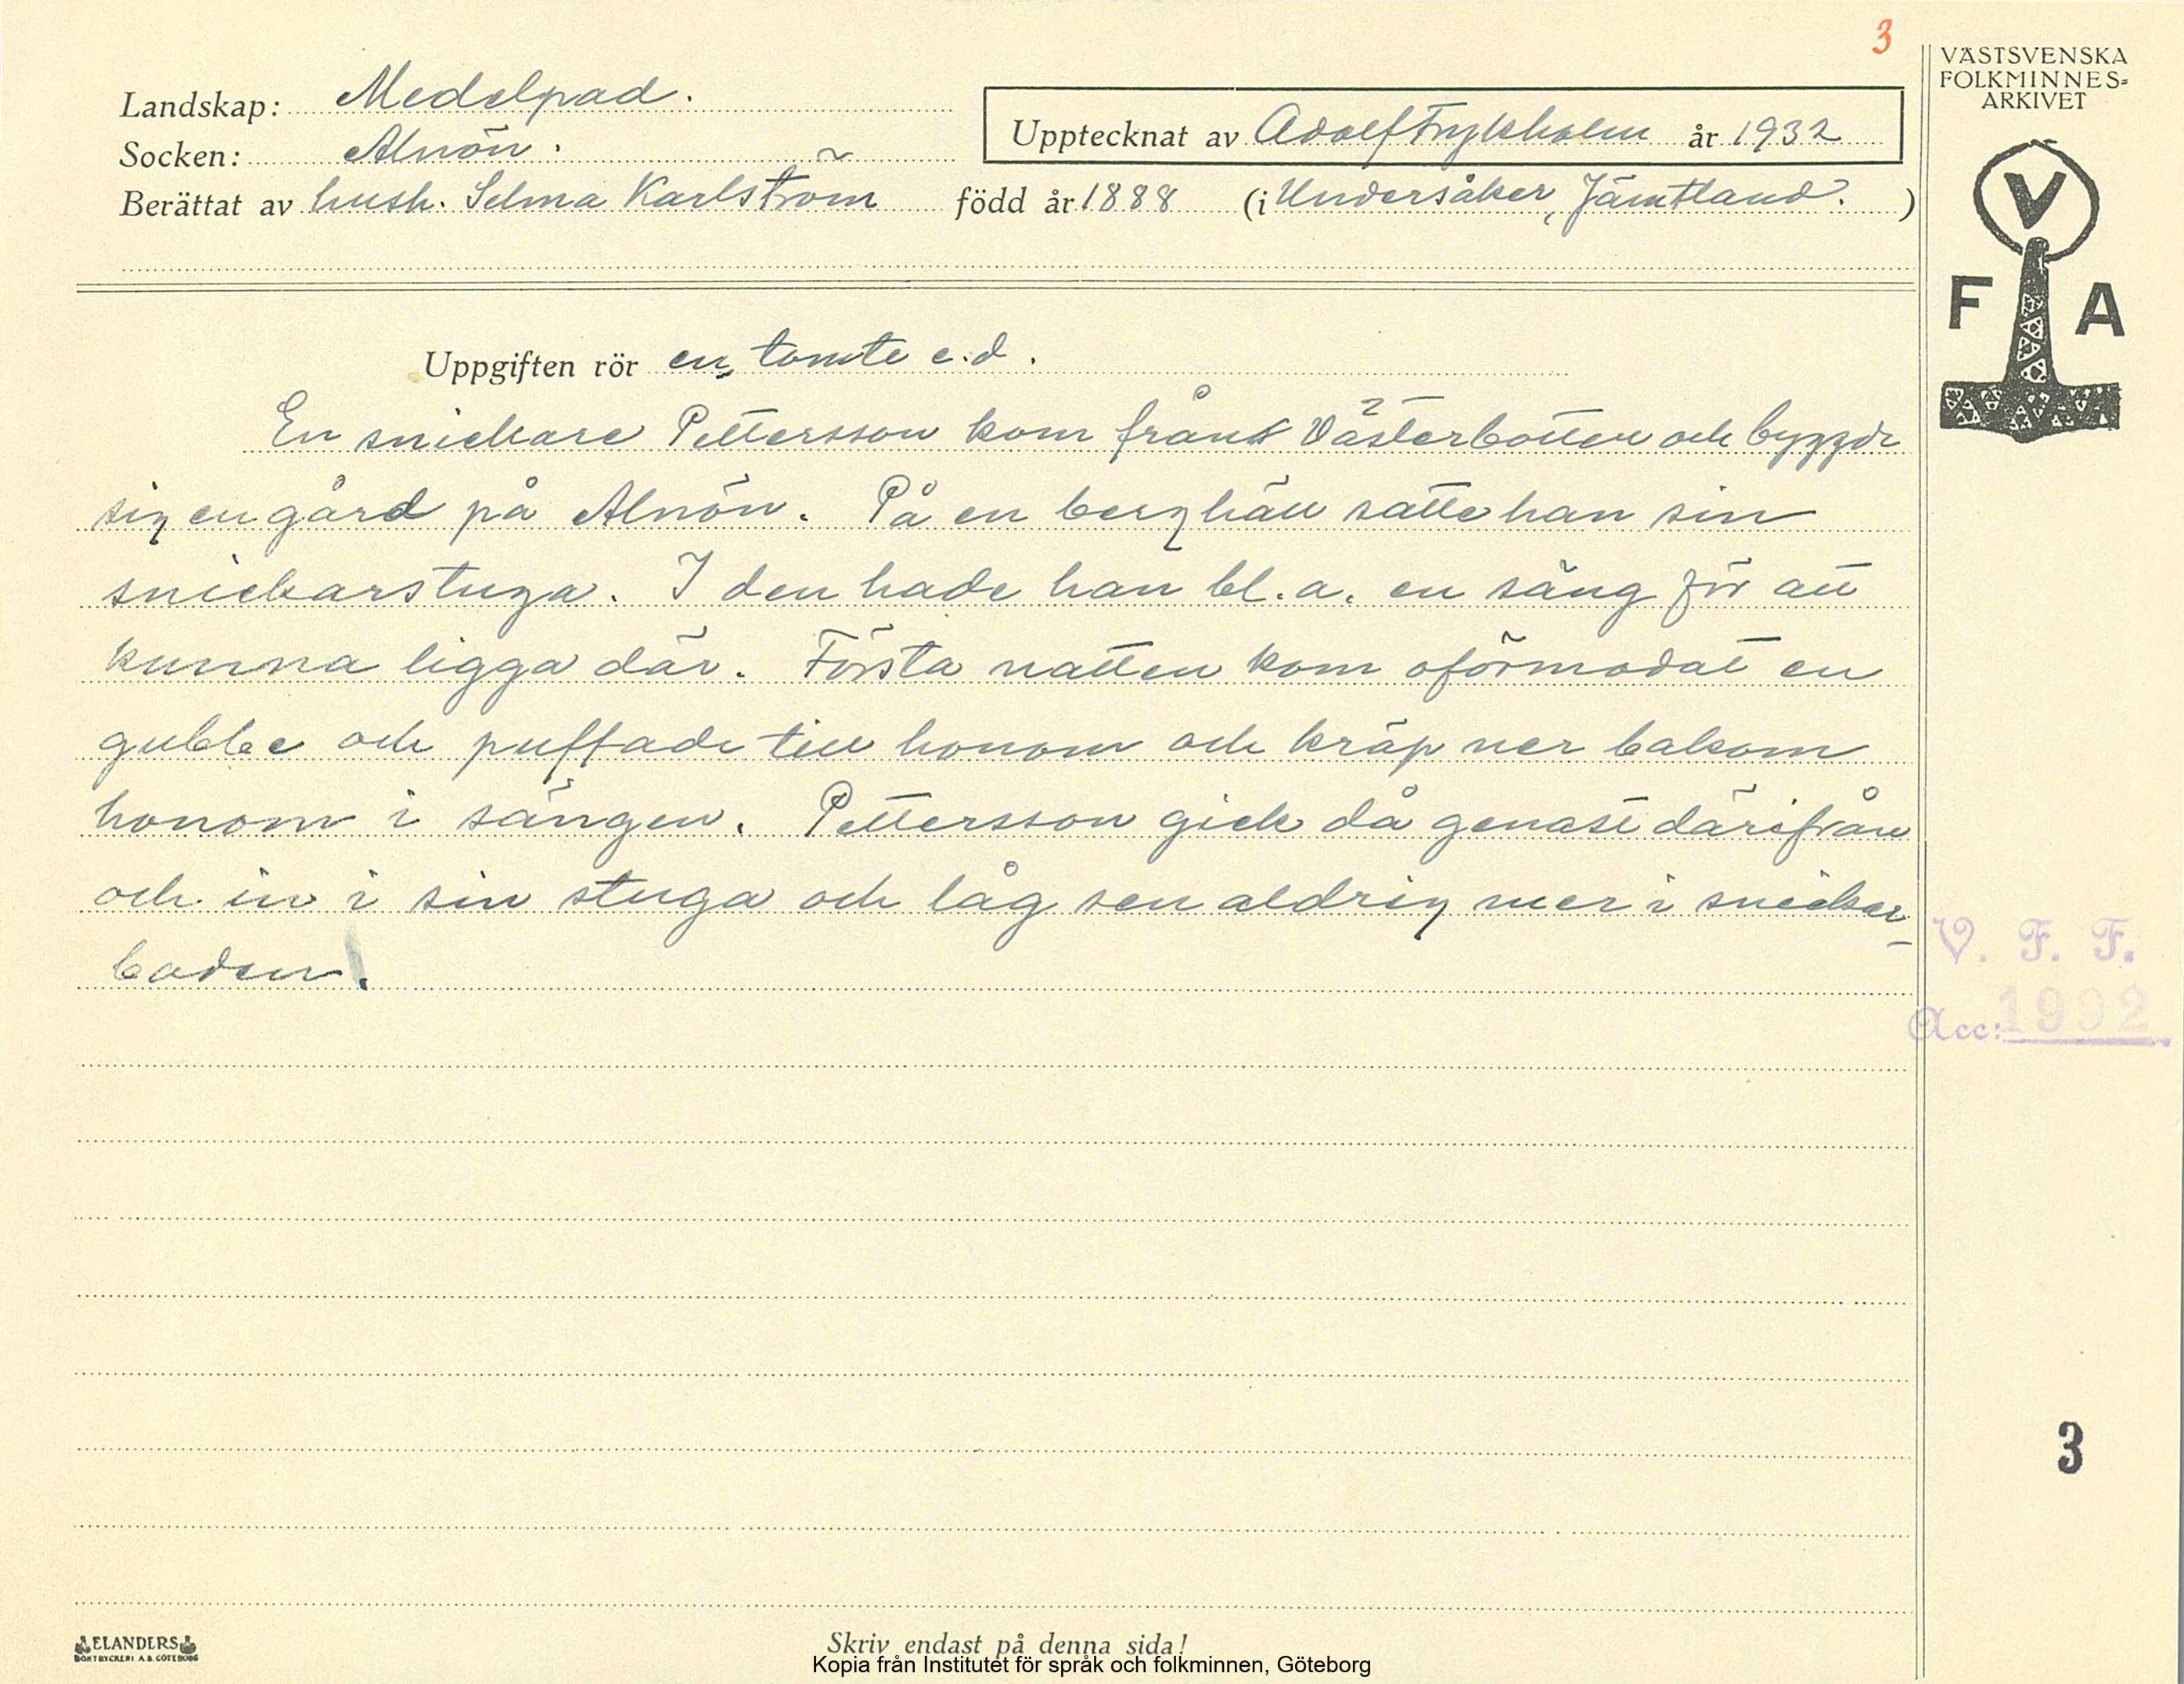 3
VÄSTSVENSKA
FOLKMINNES=
ARKIVET
Landskap: Medelpad.
Upptecknat av Adolf Frykholm år 1932
Socken: Alnön.
Berättat av hush. Selma Karlström född år 1888 (i Undersåker, Jämtland.)
V
F A
Uppgiften rör en tomte e.d.
En snickare Pettersson kom från Västerbotten och byggde
sig en gård på Alnön. På en berghäll satte han sin
snickarstuga. I den hade han bl.a. en säng för att
kunna ligga där. Första natten kom oförmodat en
gubbe och puffade till honom och kröp ner bakom
honom i sängen. Pettersson gick då genast därifrån
och in i sin stuga och låg sen aldrig mer i snickar-
boden.
V. F. F.
Acc: 1992
3
ELANDERS
BOKTRYCKERI A.B. GÖTEBORG
Skriv endast på denna sida!
Kopia från Institutet för språk och folkminnen, Göteborg